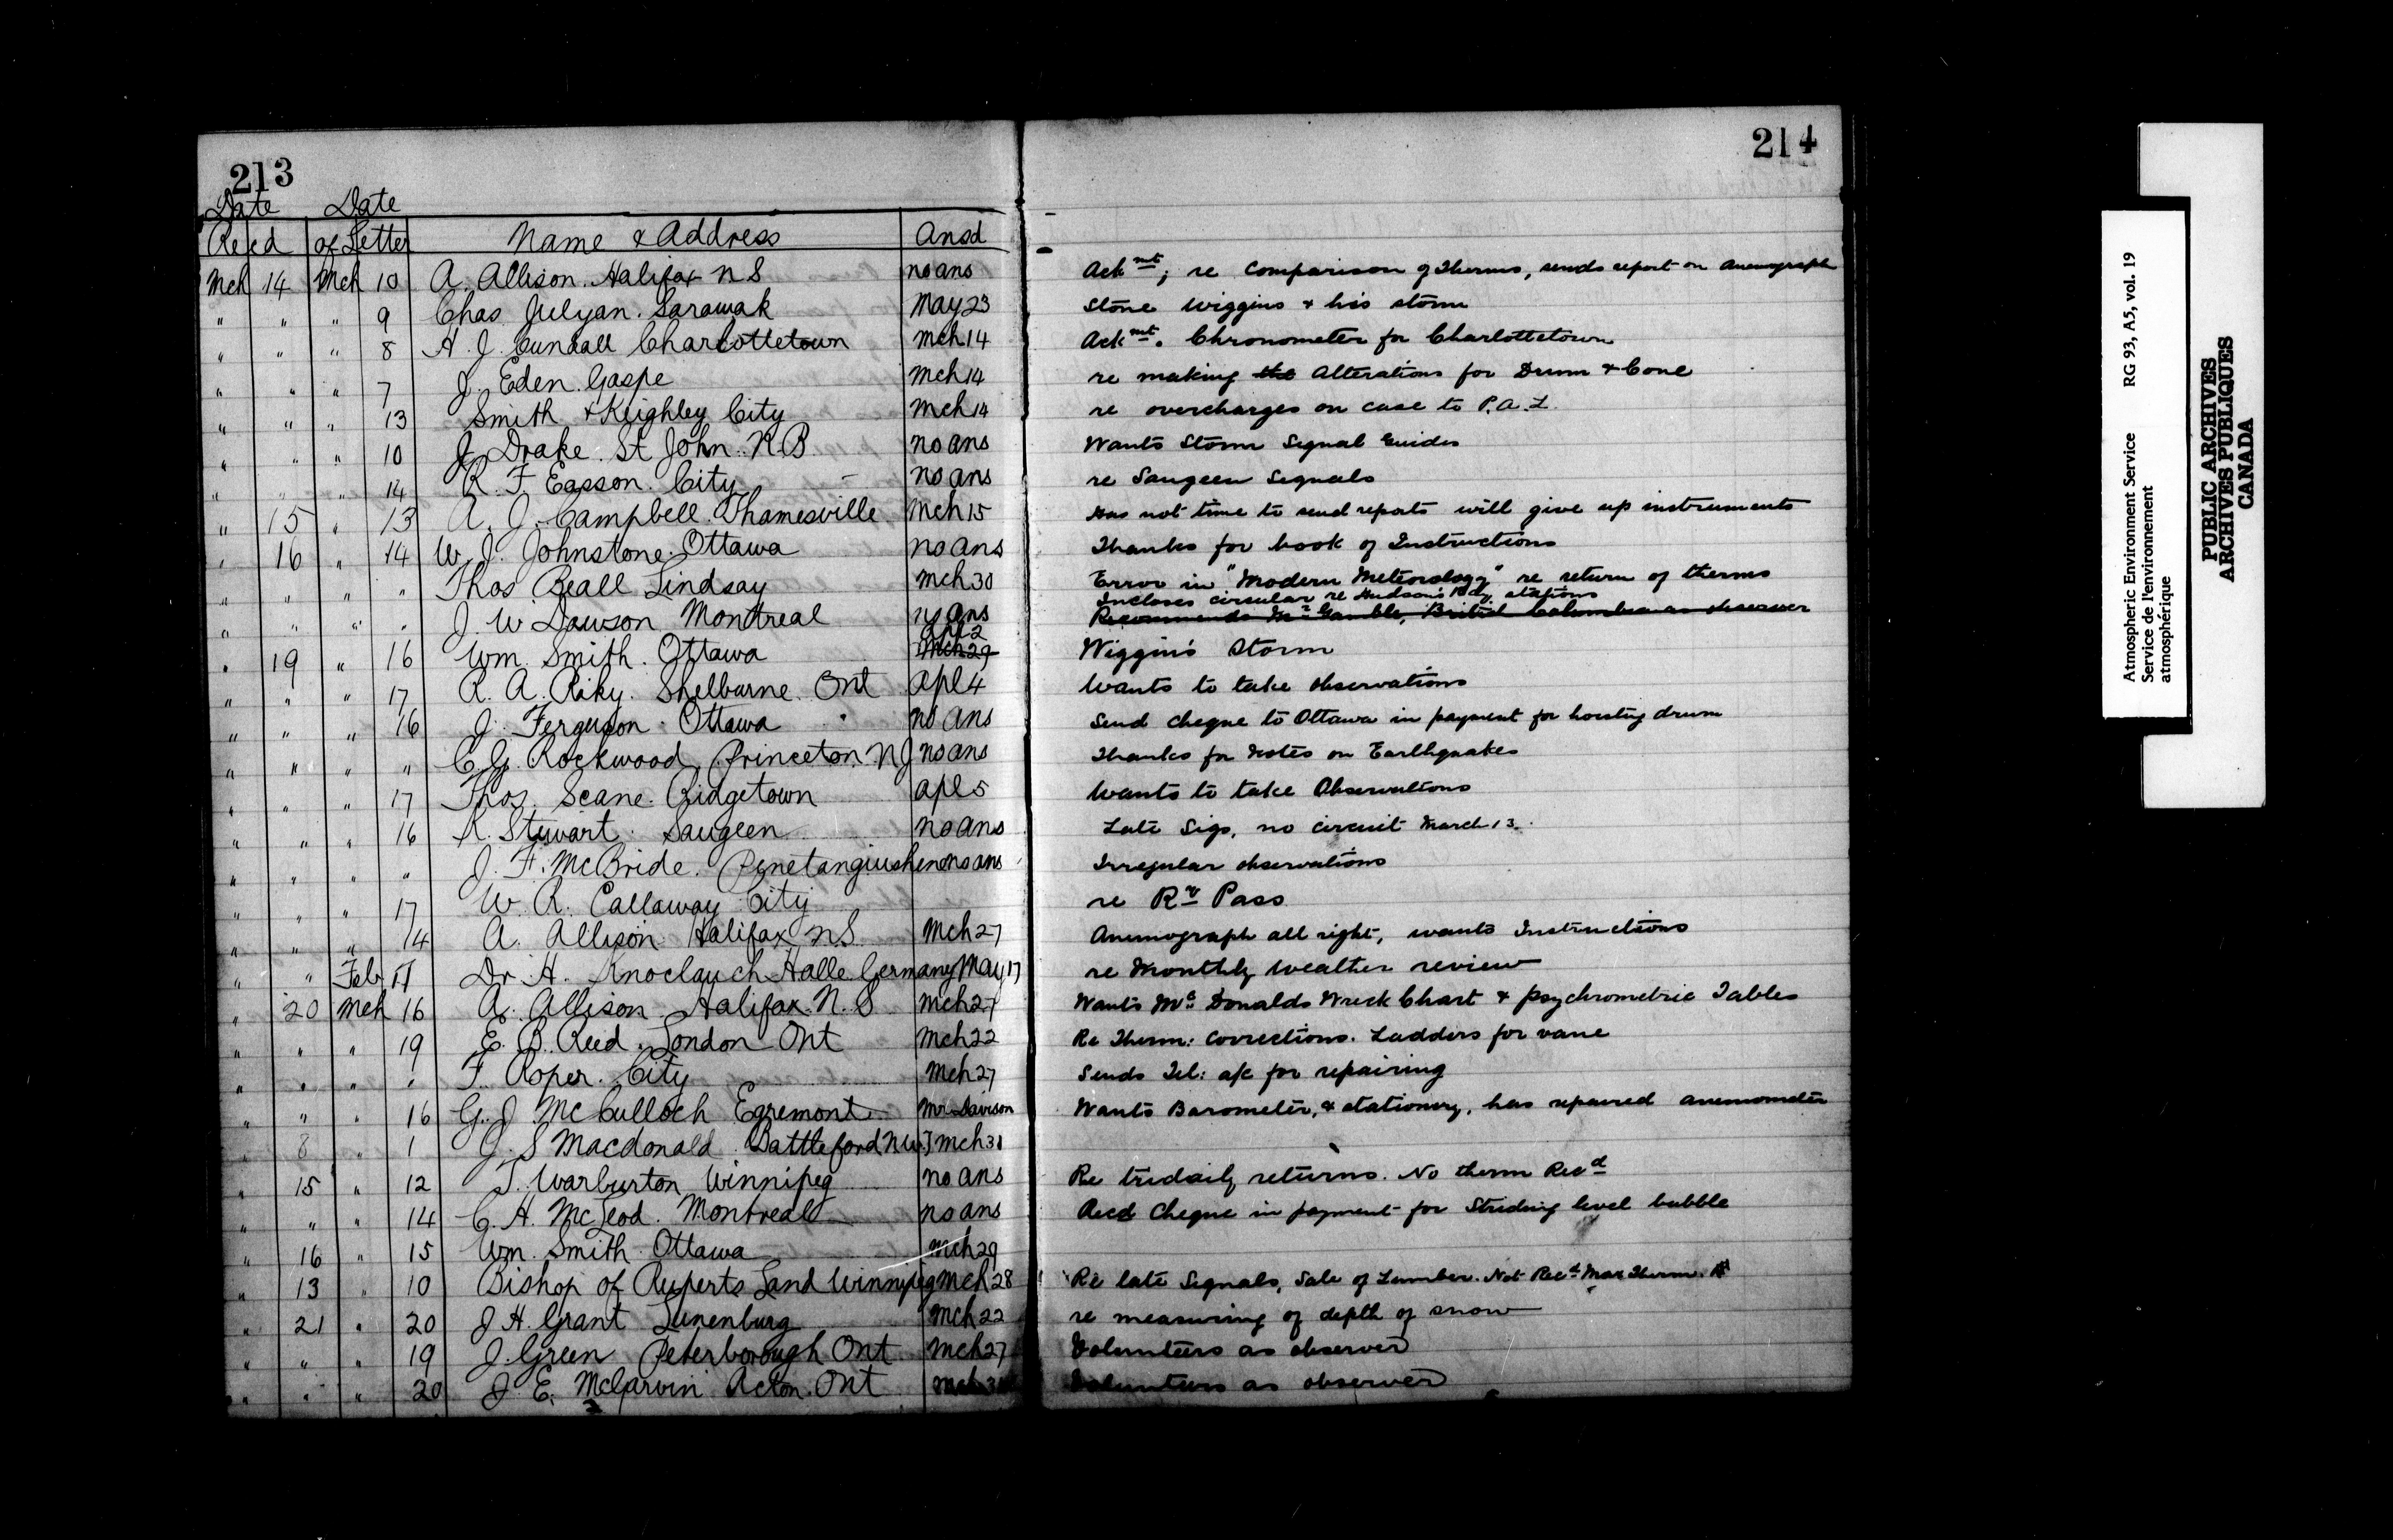 213
214
Date Date
Recd of Letter Name & Address Ansd
Mch 14 Mch 10 A. Allison. Halifax N S no ans Ackmt; re Comparison of Therms, sends report on Anemograph
" " " 9 Chas Julyan. Sarawak May 23 Stone Wiggins & his storm
" " " 8 H. J. Cundall Charlottetown Mch 14 Ackmt. Chronometer for Charlottetown
" " " 7 J. Eden. Gaspe Mch 14 re making the Alterations for Drum & Cone
" " " 13 Smith & Keighley City Mch 14 re overcharges on case to P.A.L.
" " " 10 J. Drake. St John. N B no ans Wants Storm Signal Guides
" " " 14 R. F Easson. City no ans re Saugeen Signals
" 15 " 13 A. J. Campbell. Thamesville Mch 15 Has not time to send reports will give up instruments
" 16 " 14 W. J. Johnstone. Ottawa no ans Thanks for book of Instructions
" " " " Thos Beall Lindsay Mch 30 Error in "Modern Meteorology" re return of therms
Incloses circular re Hudson's Bay stations
" " " " J. W Dawson Montreal no ans Recommends Mr Gamble, British Columbia as observer
Apl 2
" 19 " 16 Wm. Smith. Ottawa Mch 29 Wiggins Storm
" " " 17 R. A. Riky. Shelburne. Ont Apl 4 Wants to take observations
" " " 16 J. Ferguson. Ottawa no ans Send cheque to Ottawa in payment for hoisting drum
" " " " C. G. Rockwood, Princeton N J no ans Thanks for Notes on Earthquakes
" " " 17 Thos. Scane. Ridgetown Apl 5 Wants to take Observations
" " " 16 R. Stewart. Saugeen no ans Late Sigs, no circuit March 13.
" " " " J. F. McBride. Penetanguishene no ans Irregular observations
" " " 17 W. R. Callaway City re Ry Pass
" " " 14 A. Allison Halifax N S. Mch 27 Anemograph all right, wants Instructions
" " Feb 17 Dr H. Knoclauch Halle Germany May 17 re Monthly Weather review
" 20 Mch 16 A. Allison. Halifax. N. S Mch 27 Wants Mc Donalds Wreck Chart & Psychrometric Tables
" " " 19 E. B. Reed. London Ont Mch 22 Re Therm: Corrections. Ladders for vane
" " " " F. Roper. City Mch 27 Sends Tel: a/c for repairing
" " " 16 G. J. McCulloch Egremont Mr Davison Wants Barometer, & stationery, has repaired anemometer
" 8 " 1 J. S Macdonald. Battleford N W.T Mch 31
" 15 " 12 T. Warburton Winnipeg no ans Re tridaily returns. No therm Recd
" " " 14 C. H. McLeod. Montreal no ans Recd Cheque in payment for Striding level bubble
" 16 " 15 Wm. Smith. Ottawa Mch 29
" 13 " 10 Bishop of Ruperts Land Winnipeg Mch 28 Re late Signals, Sale of Lumber. Not Recd Max Therm.
" 21 " 20 J H. Grant Lunenburg Mch 22 re measuring of depth of snow
" " " 19 J. Green Peterborough Ont Mch 27 Volunteers as observer
" " " 20 J. E. McGarvin Acton. Ont Mch 31 Volunteers as observer
Atmospheric Environment Service RG 93, A5, vol. 19
Service de l'environnement
atmosphérique
PUBLIC ARCHIVES
ARCHIVES PUBLIQUES
CANADA